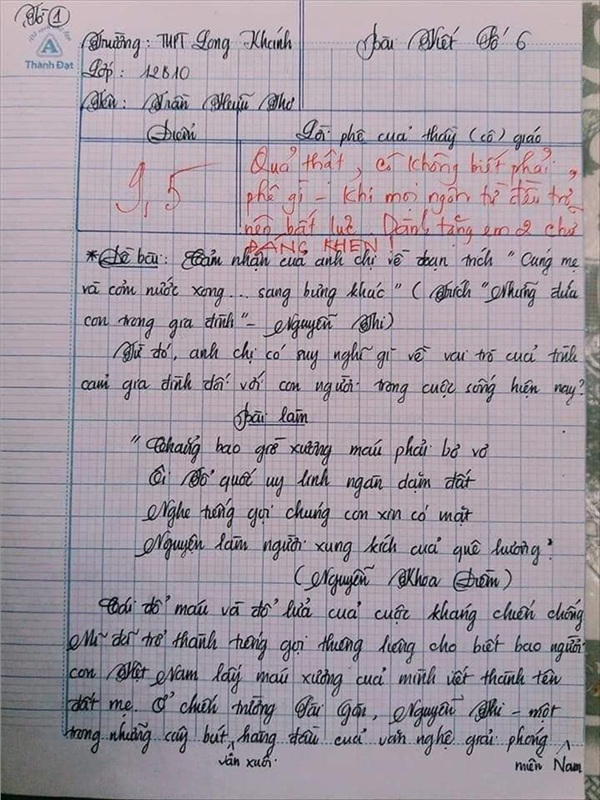 Tờ 1
A
Thành Đạt
Trường: THPT Long Khánh
Bài Viết Số 6
Lớp: 12B10
Tên: Trần Hữu Thơ
Điểm
Lời phê của thầy (cô) giáo
9,5
Quả thật, cô không biết phải
phê gì – khi mọi ngôn từ đều trở
nên bất lực. Dành tặng em 2 chữ
ĐÁNG KHEN!
* Đề bài: Cảm nhận của anh chị về đoạn trích "Cúng mẹ
và cơm nước xong... sang bưng khác" (Trích "Những đứa
con trong gia đình" – Nguyễn Thi)
Từ đó, anh chị có suy nghĩ gì về vai trò của tình
cảm gia đình đối với con người trong cuộc sống hiện nay?
Bài làm
"Chẳng bao giờ xương máu phải bơ vơ
Ôi Tổ quốc uy linh ngàn dặm đất
Nghe tiếng gọi chúng con xin có mặt
Nguyện làm người xung kích của quê hương"
(Nguyễn Khoa Điềm)
Cái đổ máu và đổ lửa của cuộc kháng chiến chống
Mĩ đã trở thành tiếng gọi thương lương cho biết bao người
con Việt Nam lấy máu xương của mình viết thành tên
đất mẹ. Ở chiến trường Sài Gòn, Nguyễn Thi – một
trong những cây bút văn xuôi hàng đầu của văn nghệ giải phóng miền Nam